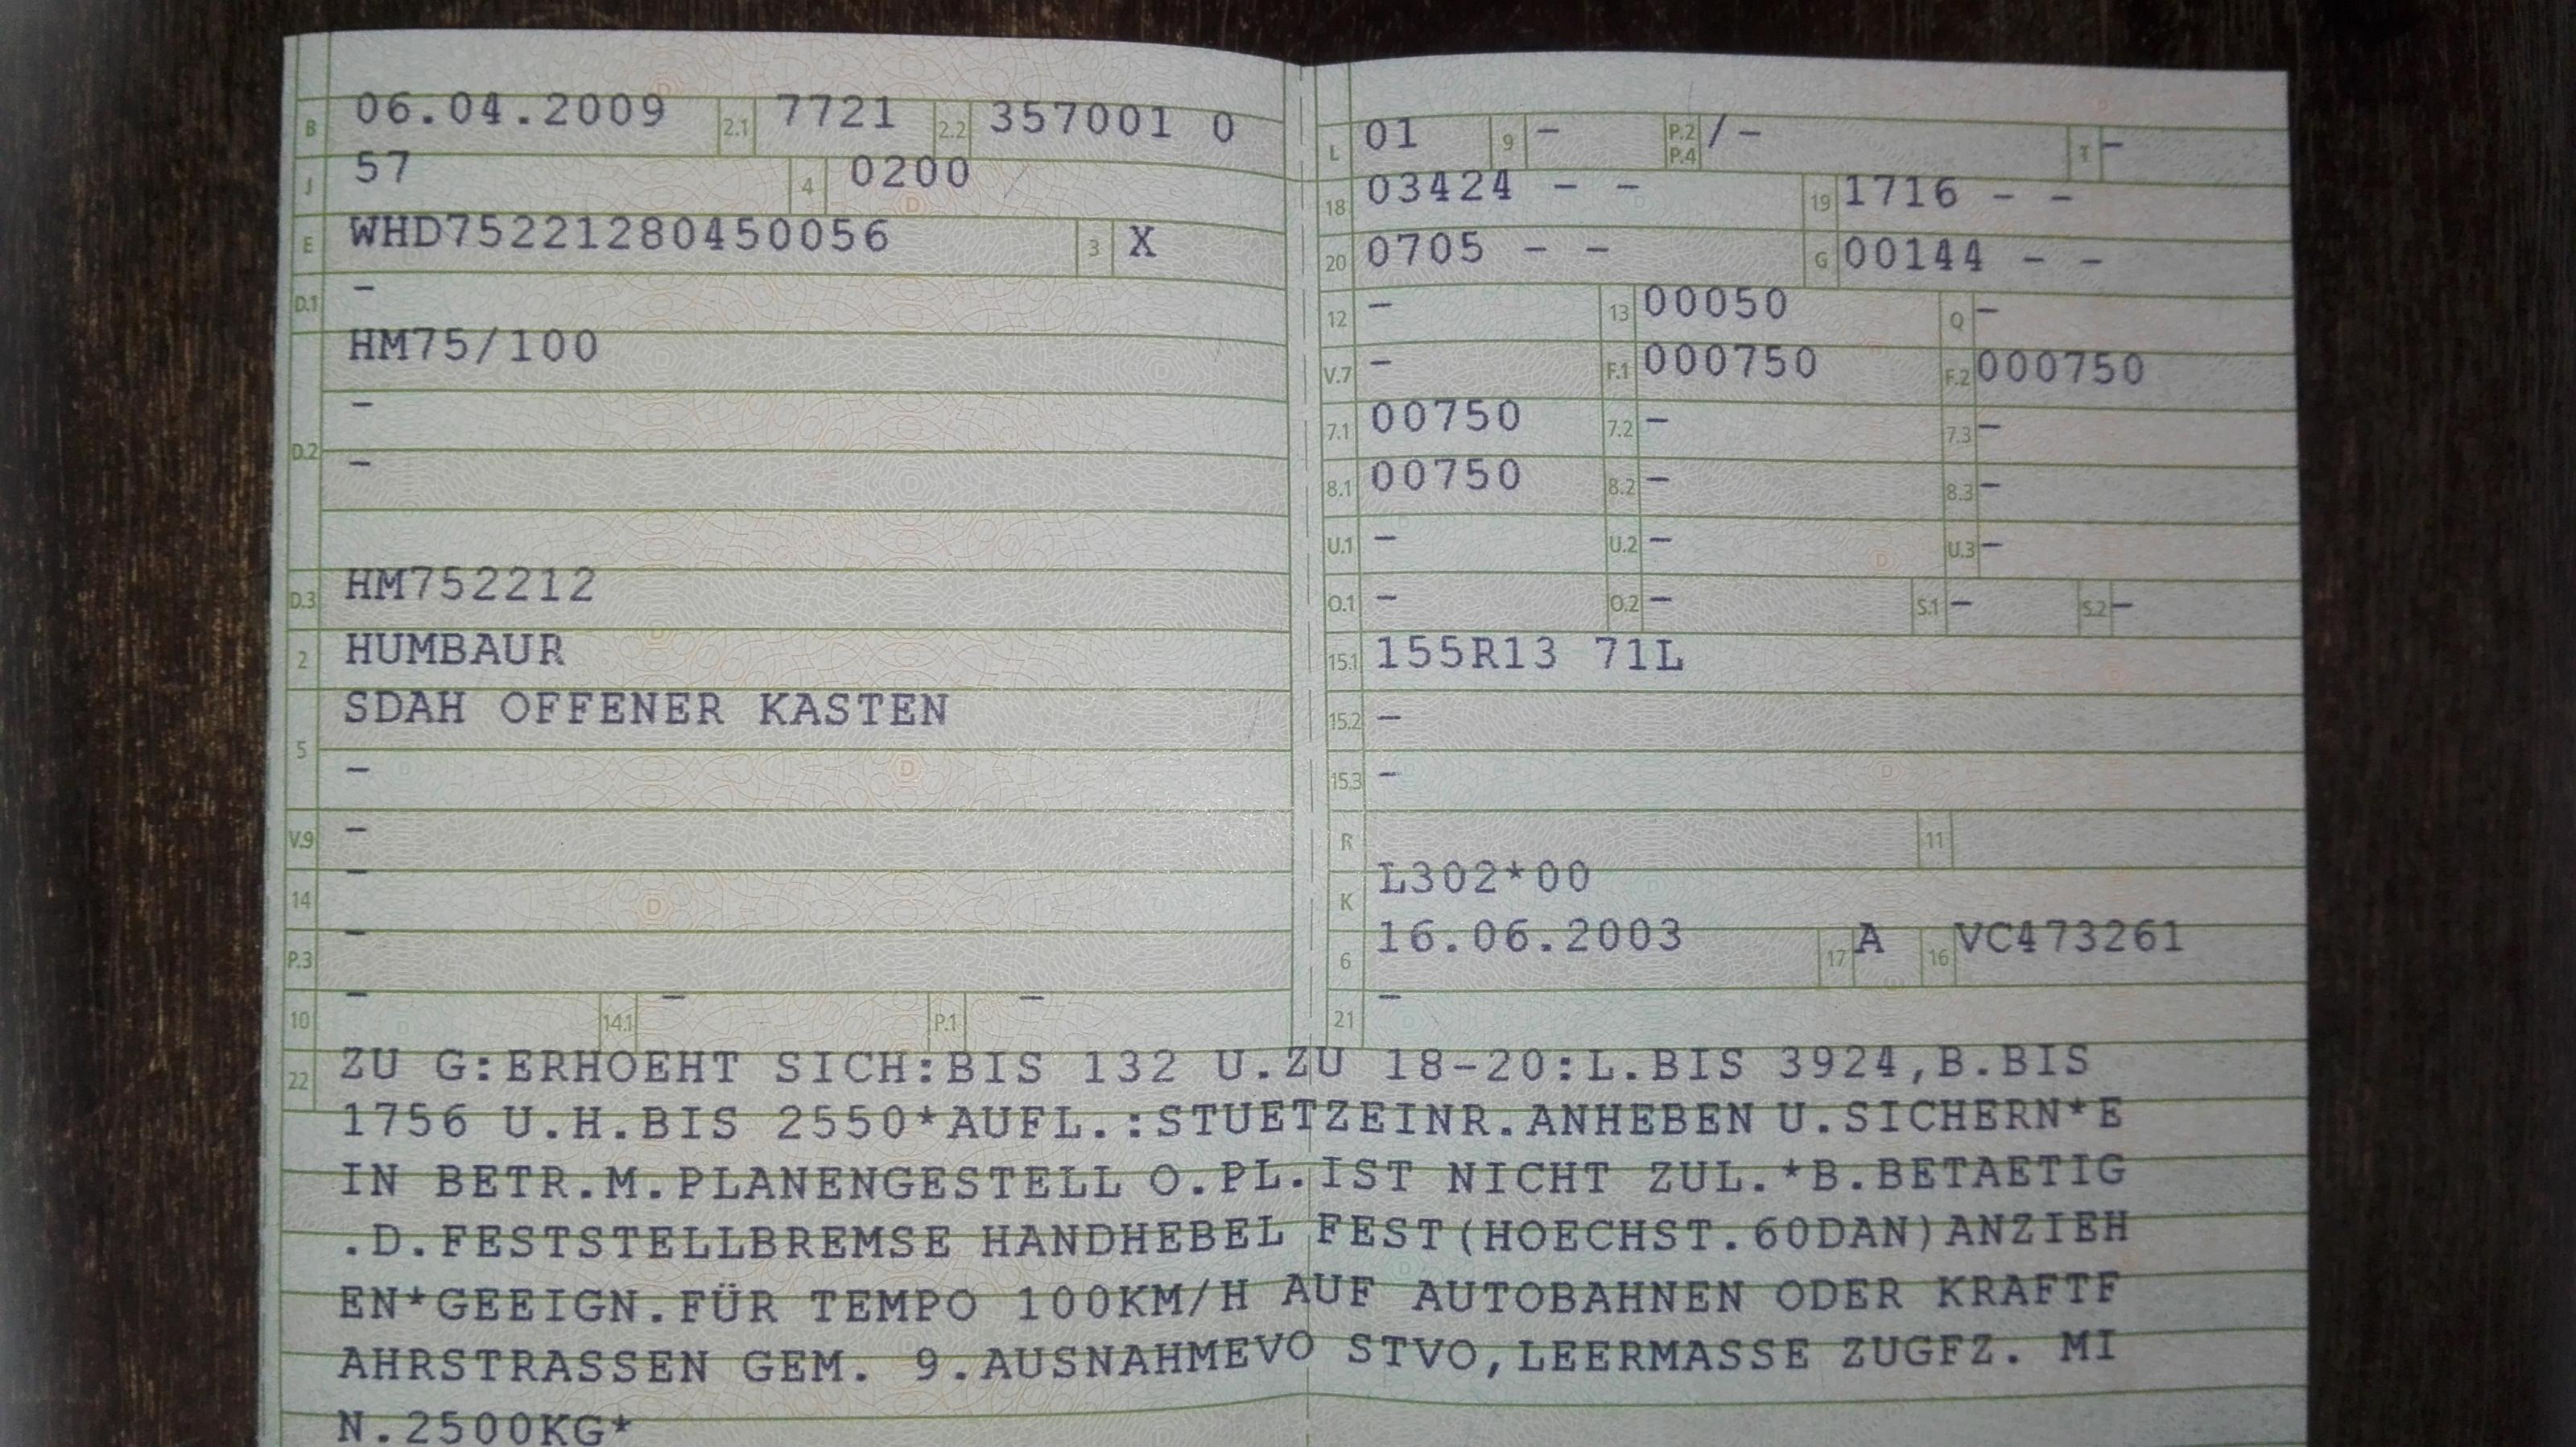 B 06.04.2009 2.1 7721 2.2 357001 0
J 57 4 0200
E WHD75221280450056 3 X
D.1 -
HM75/100
-
D.2 -
D.3 HM752212
2 HUMBAUR
SDAH OFFENER KASTEN
5 -
V.9 -
14 -
P.3 -
10 - 14.1 - P.1 -
L 01 9 - P.2 P.4 /- T -
18 03424 - - 19 1716 - -
20 0705 - - G 00144 - -
12 - 13 00050 Q -
V.7 - F.1 000750 F.2 000750
7.1 00750 7.2 - 7.3 -
8.1 00750 8.2 - 8.3 -
U.1 - U.2 - U.3 -
O.1 - O.2 - S.1 - S.2 -
15.1 155R13 71L
15.2 -
15.3 -
R 11
K L302*00
6 16.06.2003 17 A 16 VC473261
21 -
22 ZU G:ERHOEHT SICH:BIS 132 U.ZU 18-20:L.BIS 3924,B.BIS
1756 U.H.BIS 2550*AUFL.:STUETZEINR.ANHEBEN U.SICHERN*E
IN BETR.M.PLANENGESTELL O.PL.IST NICHT ZUL.*B.BETAETIG
.D.FESTSTELLBREMSE HANDHEBEL FEST(HOECHST.60DAN)ANZIEH
EN*GEEIGN.FÜR TEMPO 100KM/H AUF AUTOBAHNEN ODER KRAFTF
AHRSTRASSEN GEM. 9.AUSNAHMEVO STVO,LEERMASSE ZUGFZ. MI
N.2500KG*